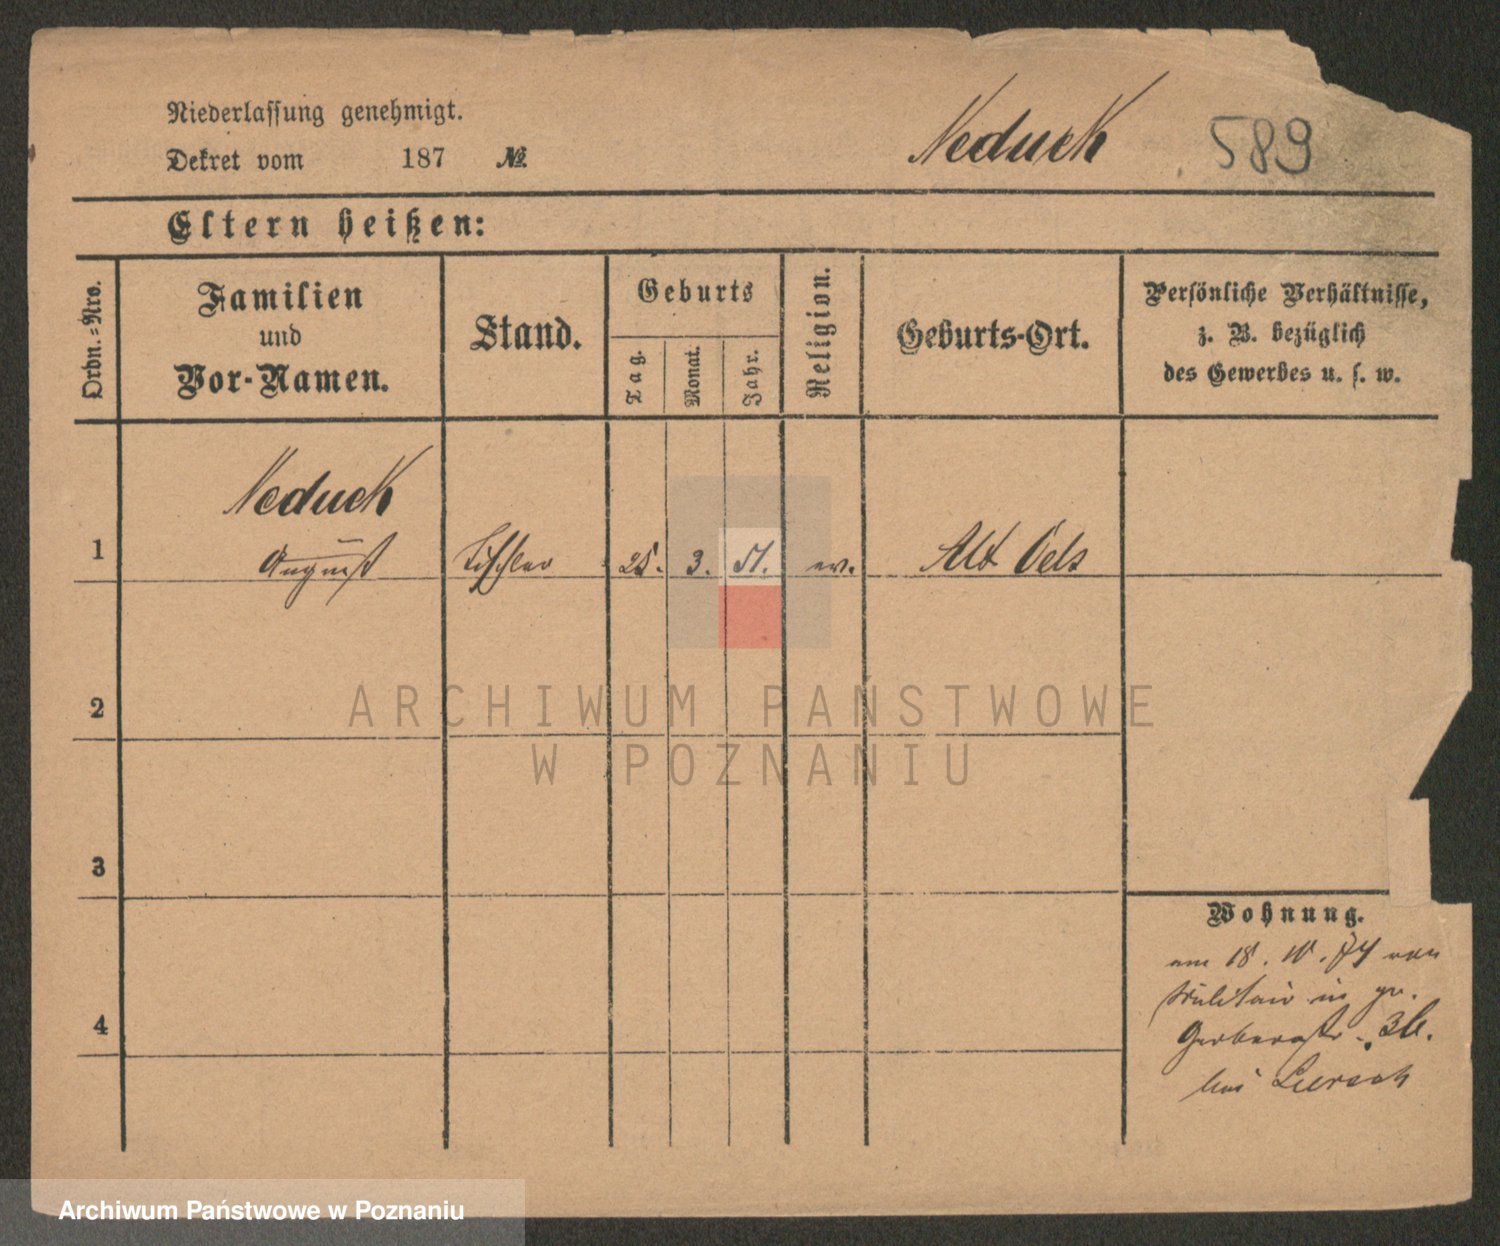 Niederlassung genehmigt.
Dekret vom 187 №
Neduck 589
Eltern heißen:
Ordn.-Nro.
Familien
und
Vor-Namen.
Stand.
Geburts
Tag.
Monat.
Jahr.
Religion.
Geburts-Ort.
Persönliche Verhältnisse,
z. B. bezüglich
des Gewerbes u. s. w.
Neduck
1 August Tischler 25. 3. 51. ev. Alt Oels
2
3
4
Wohnung.
am 18. 10. 74 von
Militair in gr.
Gerberstr. 36.
bei
ARCHIWUM PAŃSTWOWE
W POZNANIU
Archiwum Państwowe w Poznaniu